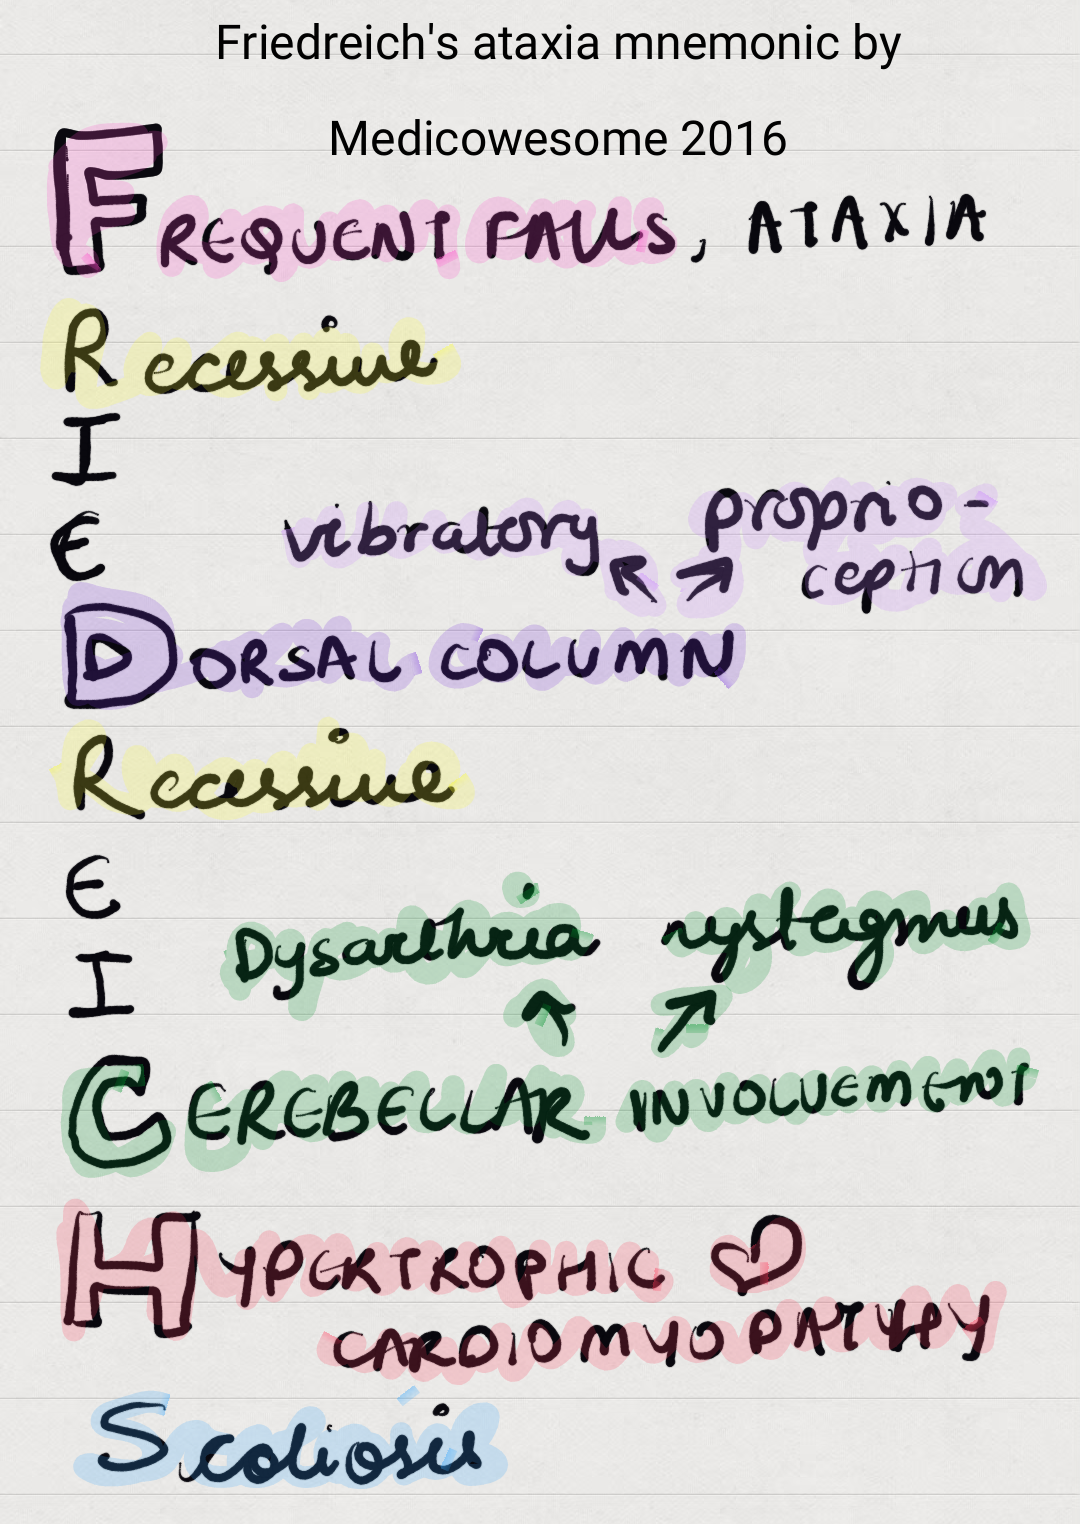 Friedreich's ataxia mnemonic by
Medicowesome 2016
FREQUENT FALLS, ATAXIA
Recessive
I
E vibratory proprio-
ception
DORSAL COLUMN
Recessive
E
Dysarthria nystagmus
I
CEREBELLAR INVOLVEMENT
HYPERTROPHIC
CARDIOMYOPATHY
Scoliosis